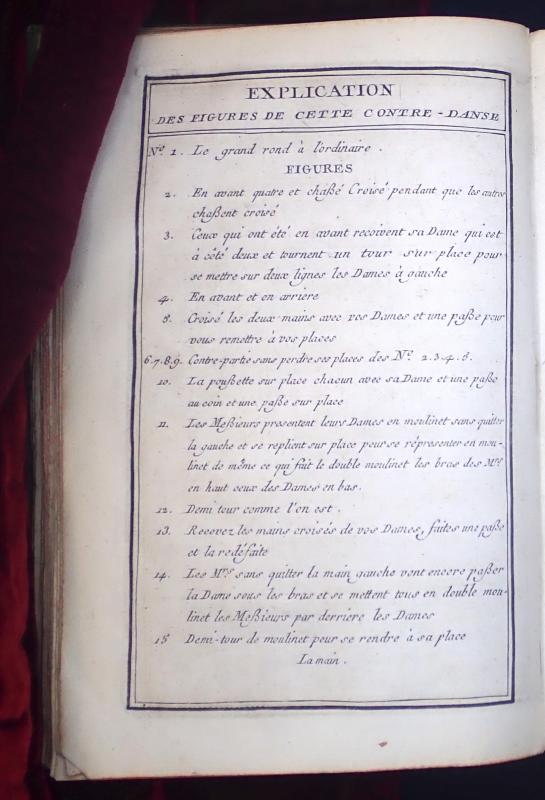 EXPLICATION
DES FIGURES DE CETTE CONTRE-DANSE
Nº. 1. Le grand rond à l'ordinaire.
FIGURES
2. En avant quatre et chaßé Croisé pendant que les autres
chaßent croisé
3. Ceux qui ont été en avant recoivent sa Dame qui est
à côté deux et tournent un tour sur place pour
se mettre sur deux lignes les Dames à gauche
4. En avant et en arriere
5. Croisé les deux mains avec vos Dames et une paße pour
vous remettre à vos places
6.7.8.9. Contre-partie sans perdre ses places des Nº. 2.3.4.5.
10. La poußette sur place chacun avec sa Dame et une paße
au coin et une paße sur place
11. Les Meßieurs presentent leurs Dames en moulinet sans quitter
la gauche et se replient sur place pour se réprésenter en mou-
linet de même ce qui fait le double moulinet les bras des Mrs.
en haut ceux des Dames en bas.
12. Demi tour comme l'on est.
13. Recevez les mains croisés de vos Dames, faites une paße
et la redéfaite
14. Les Mrs. sans quitter la main gauche vont encore paßer
la Dame sous les bras et se mettent tous en double mou-
linet les Meßieurs par derriére les Dames
15 Demi-tour de moulinet pour se rendre à sa place
La main.